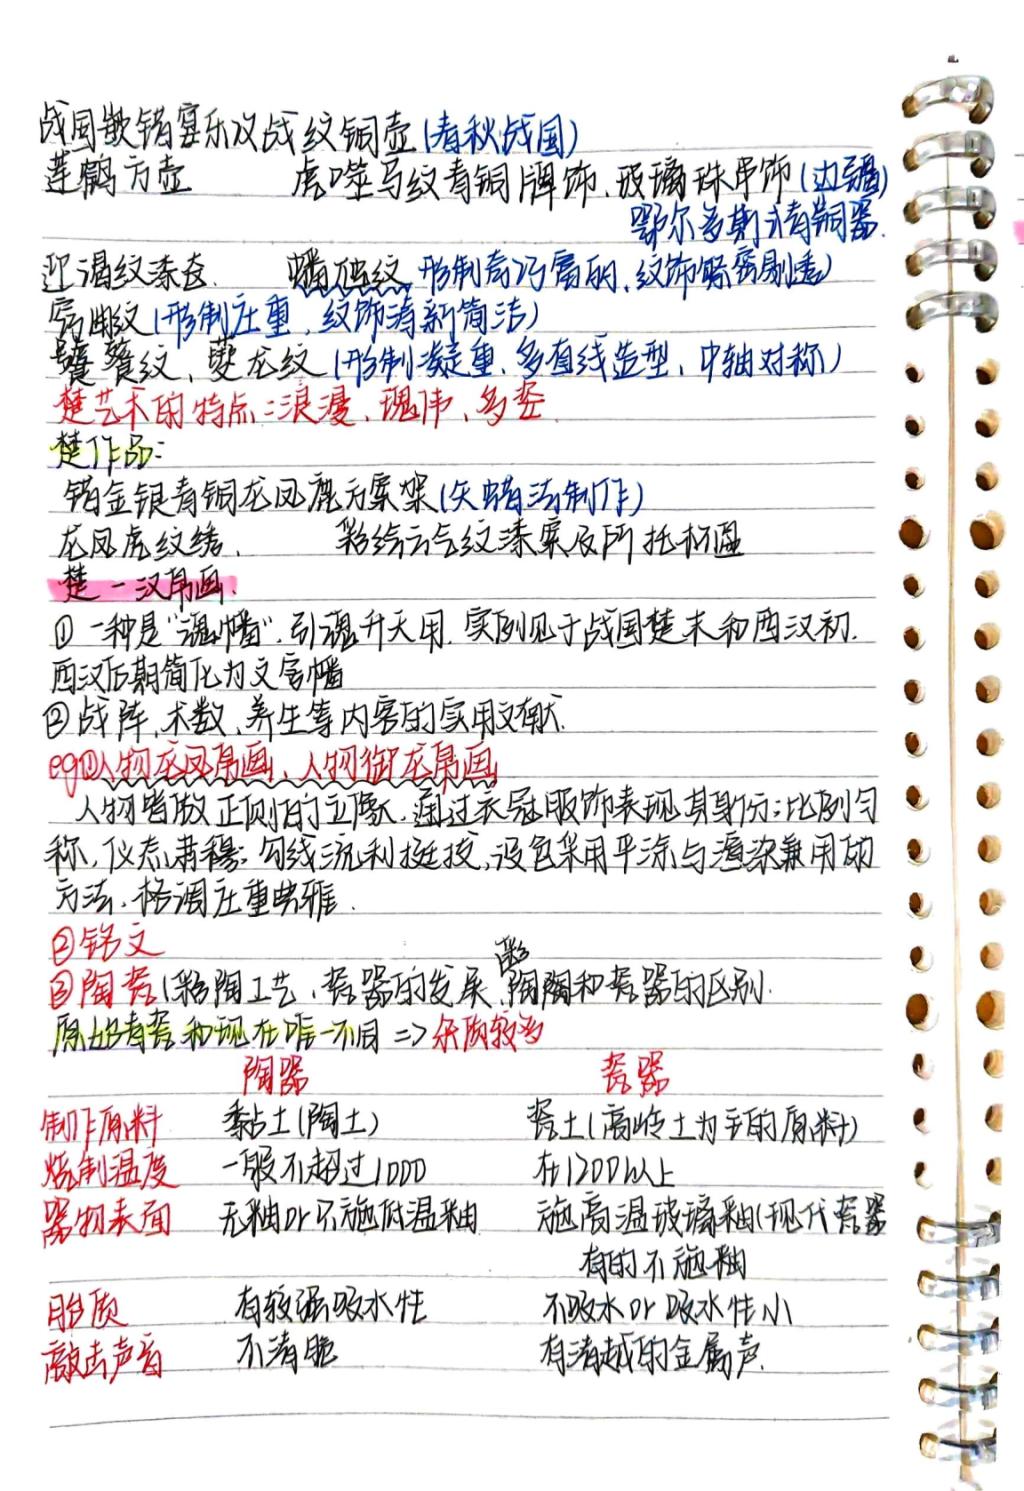 战国嵌错宴乐攻战纹铜壶(春秋战国)
莲鹤方壶 虎噬马纹青铜牌饰、玻璃珠串饰(边疆)
鄂尔多斯式青铜器.
迎谒纹漆奁. 蟠虺纹 形制奇巧富丽、纹饰繁密剔透)
窃曲纹(形制庄重、纹饰清新简洁)
饕餮纹、夔龙纹(形制凝重、多直线造型、中轴对称)
楚艺术的特点:浪漫、瑰伟、多姿.
楚作品:
错金银青铜龙凤鹿方案架(失蜡法制作)
龙凤虎纹绣、 彩绘云气纹漆案及所托杯盘
楚-汉帛画.
①一种是“魂幡”,引魂升天用.实例见于战国楚末和西汉初.
西汉后期简化为文字幡
②战阵、术数、养生等内容的实用文献.
eg①人物龙凤帛画、人物御龙帛画
人物皆做正侧的立像,通过衣冠服饰表现其身份;比例匀
称,仪态肃穆;勾线流利挺拔,设色采用平涂与渲染兼用的
方法,格调庄重典雅.
②铭文
彩
③陶瓷(彩陶工艺、瓷器的发展、陶陶和瓷器的区别.
原始青瓷和现在唯一不同=>杂质较多
陶器 瓷器
制作原料 黏土(陶土) 瓷土(高岭土为主的原料)
烧制温度 一般不超过1000 在1200以上
器物表面 无釉or不施低温釉 施高温玻璃釉(现代瓷器
有的不施釉
胎质 有较强吸水性 不吸水or吸水性小
敲击声音 不清脆 有清越的金属声.